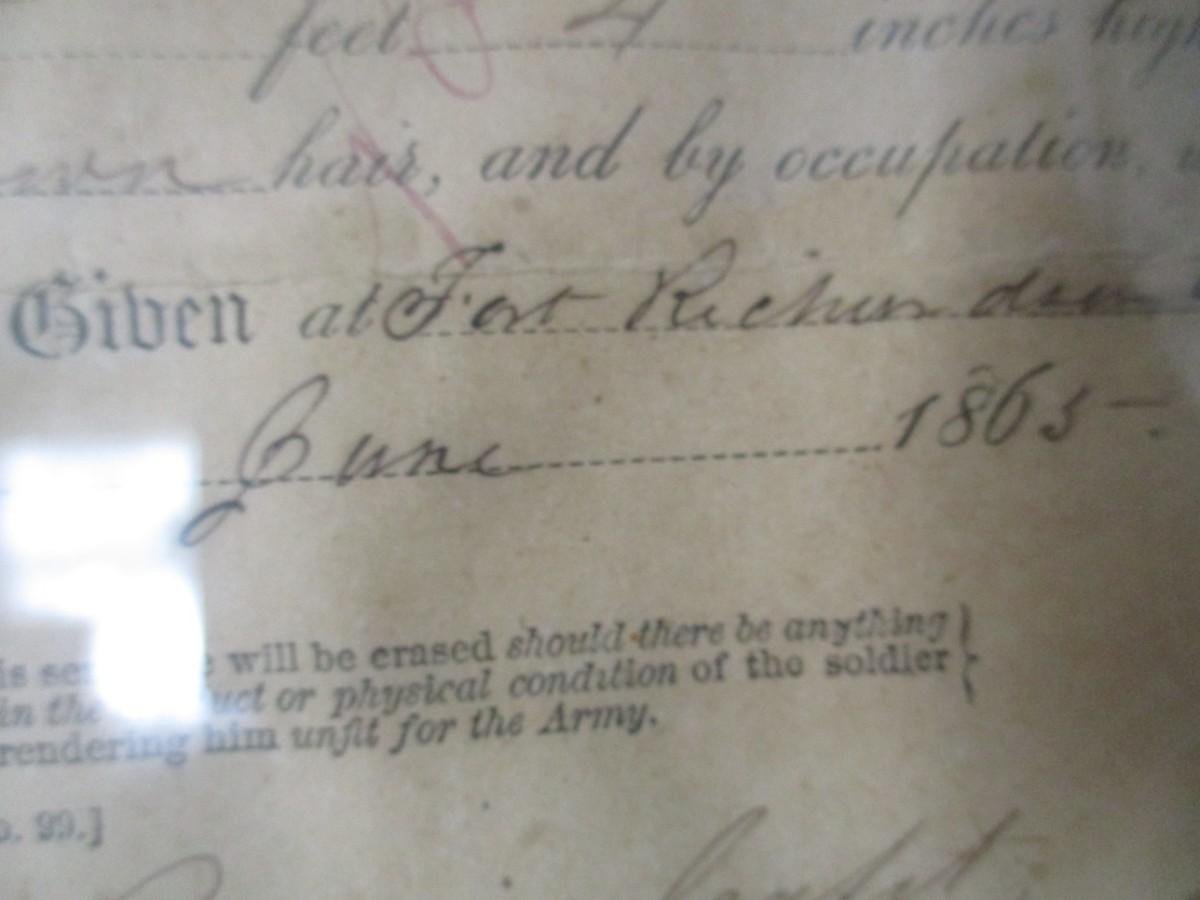 feet 4 inches high
hair, and by occupation,
Given at Fort Richardson
June 1865
will be erased should there be anything
in the or physical condition of the soldier
rendering him unfit for the Army.
99.]